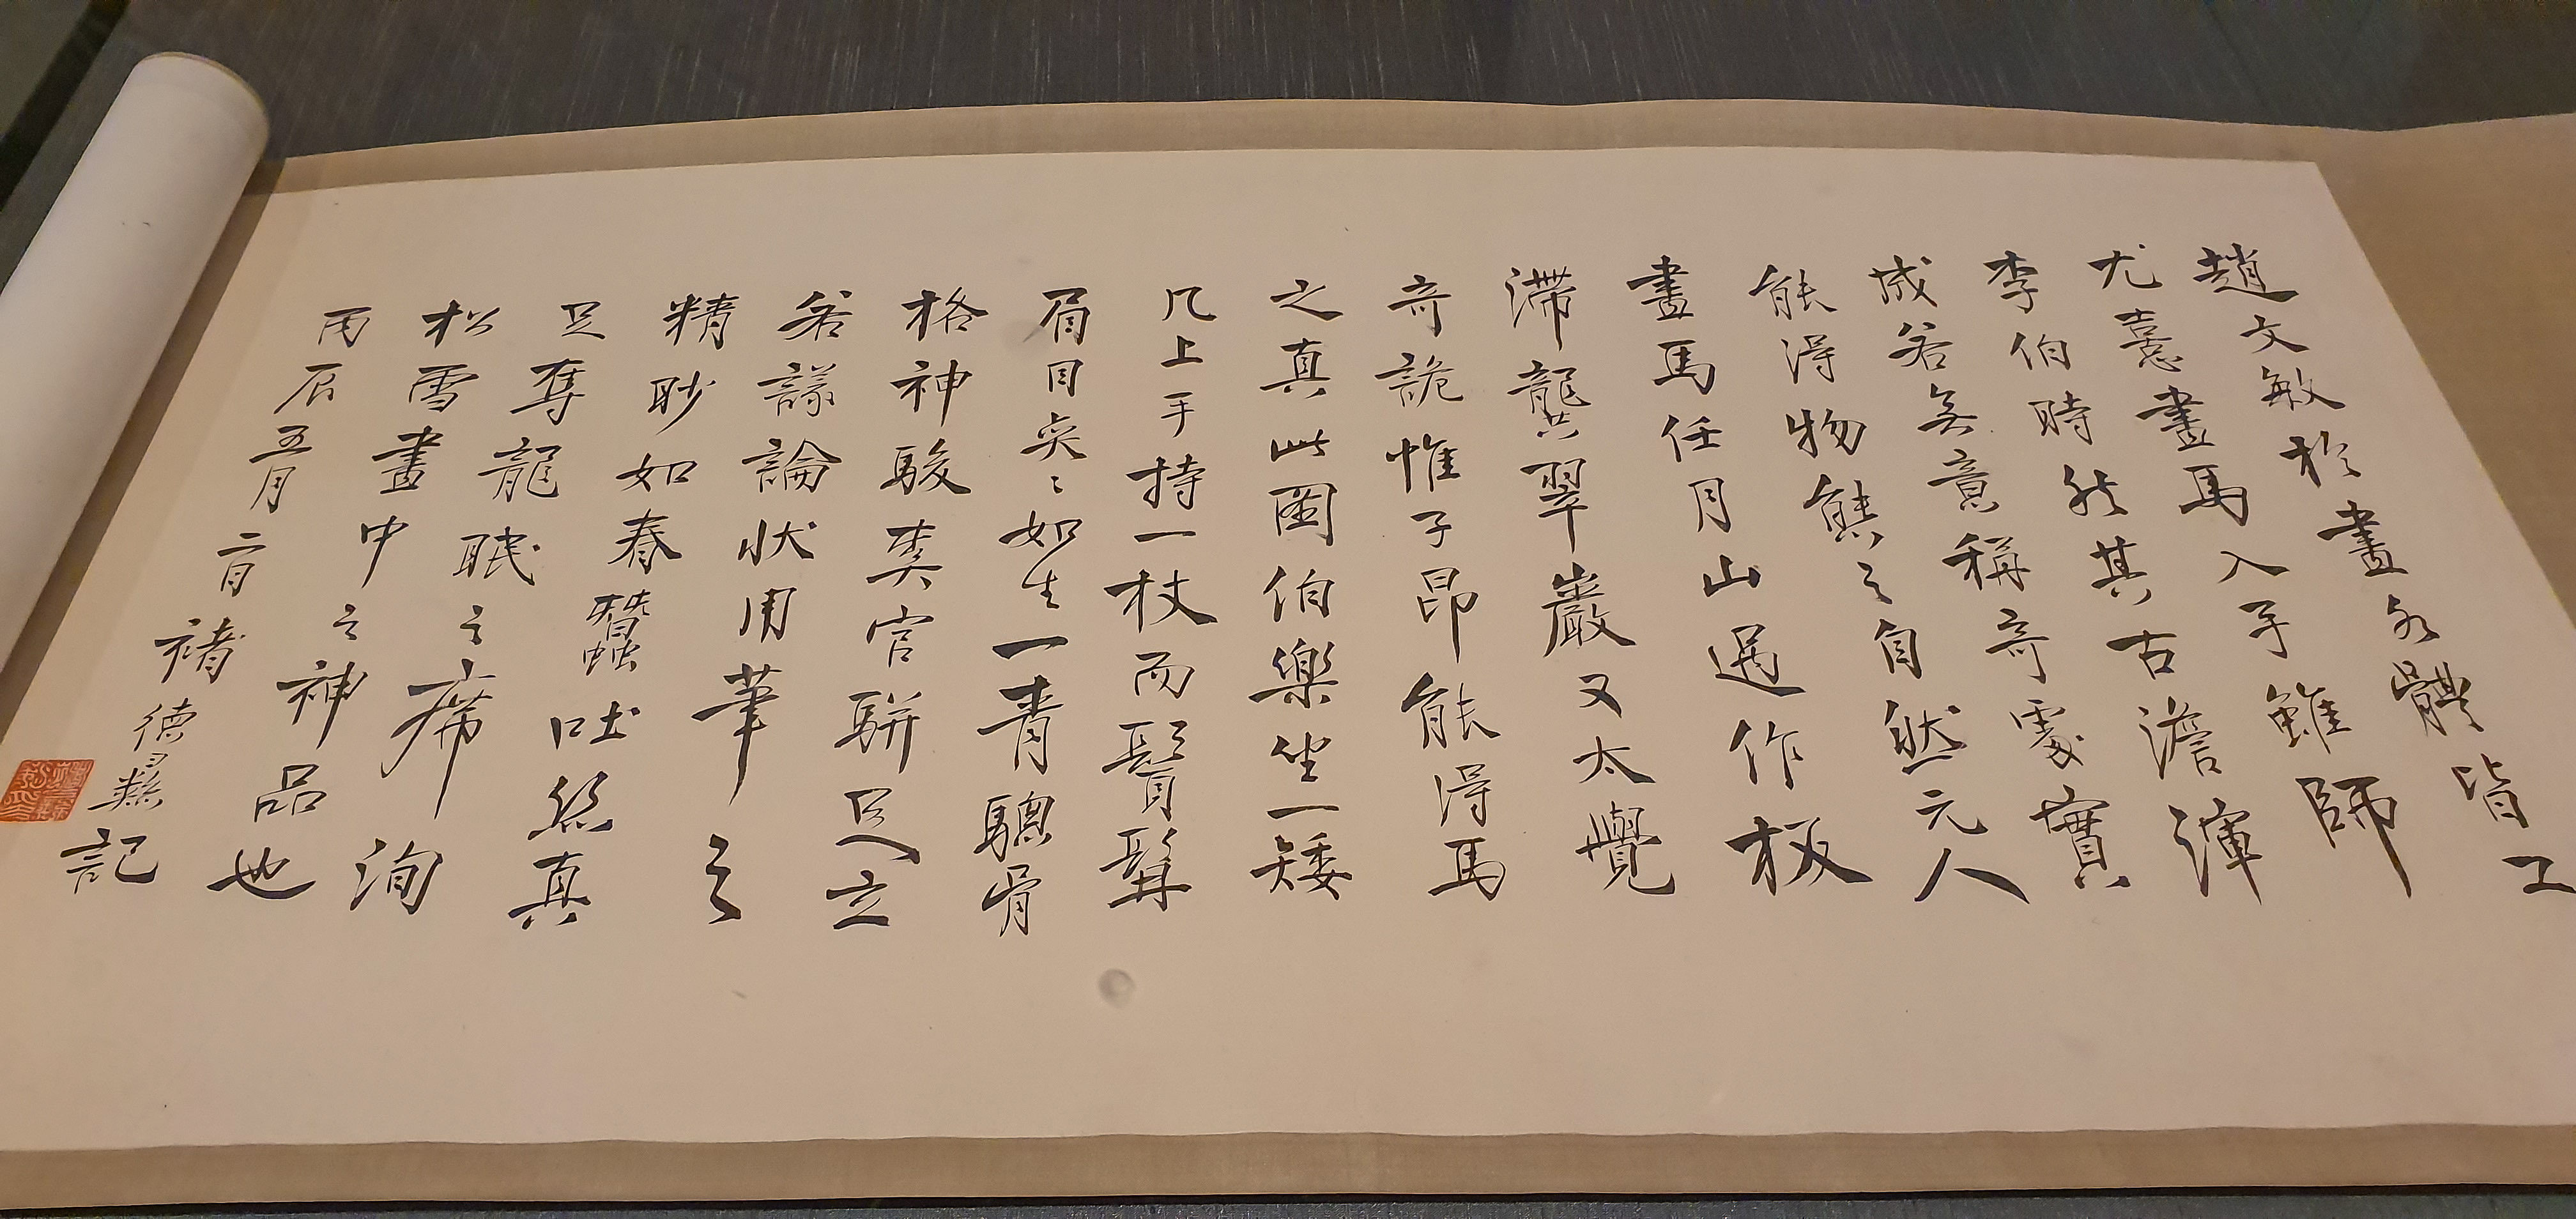 趙文敏於畫各體皆工
尤喜畫馬入手雖師
李伯時然其古澹渾
成若無意稱奇處實
能得物態之自然元人
畫馬任月山過作板
滯龔翠巖又太覺
奇詭惟子昂能得馬
之真此圖伯樂坐一矮
几上手持一杖而鬚髯
眉目奕〻如生一青驄骨
格神駿奚官駢足立
若議論狀用筆之
精妙如春蠶吐絲真
足奪龍眠之席洵
松雪畫中之神品也
丙辰五月二日褚德彝記